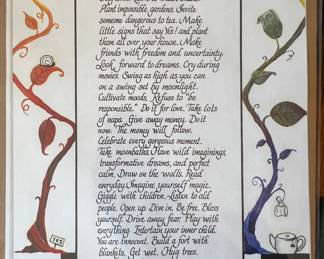 Plant impossible gardens. Invite
someone dangerous to tea. Make
little signs that say Yes! and plant
them all over your house. Make
friends with freedom and uncertainty.
Look forward to dreams. Cry during
movies. Swing as high as you can
on a swing set by moonlight.
Cultivate moods. Refuse to "be
responsible." Do it for love. Take lots
of naps. Give away money. Do it
now. The money will follow.
Celebrate every gorgeous moment.
Take moonbaths. Have wild imaginings,
transformative dreams, and perfect
calm. Draw on the walls. Read
everyday. Imagine yourself magic.
Giggle with children. Listen to old
people. Open up. Dive in. Be free. Bless
yourself. Drive away fear. Play with
everything. Entertain your inner child.
You are innocent. Build a fort with
blankets. Get wet. Hug trees.
YES